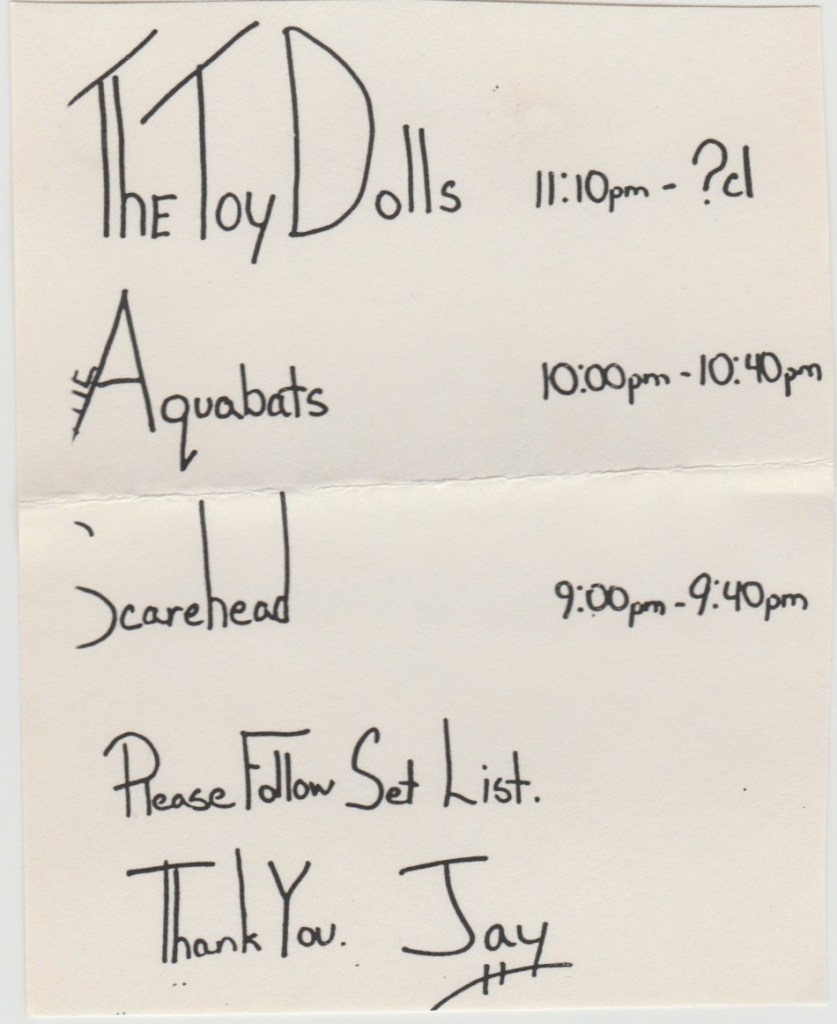 The Toy Dolls 11:10pm - ?cl
The Aquabats 10:00pm - 10:40pm
Scarehead 9:00pm - 9:40pm
Please Follow Set List.
Thank You. Jay